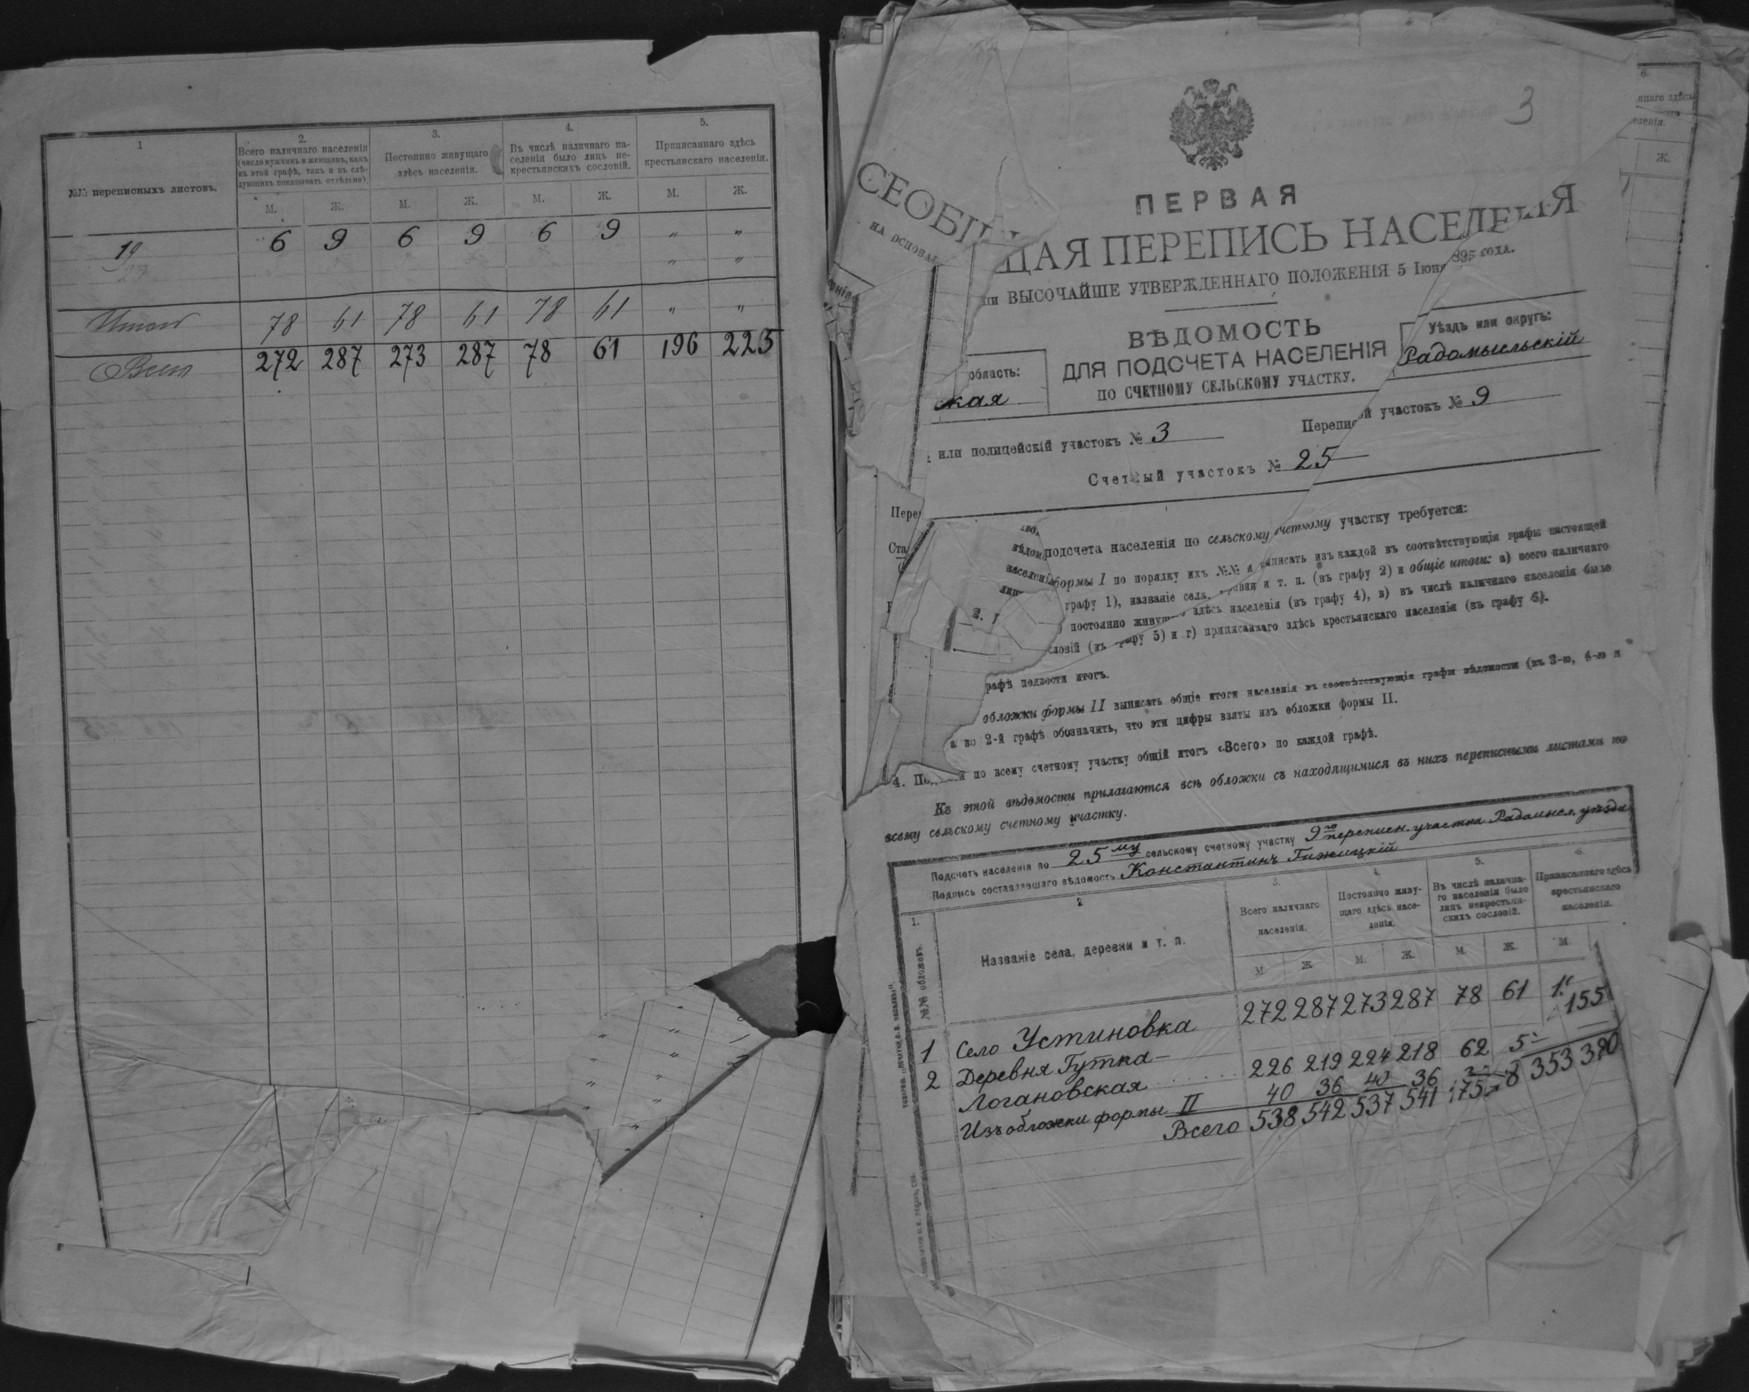 1
№№ переписныхъ листовъ.
2.
Всего наличнаго населенія
(число мужчинъ и женщинъ, какъ
въ этой графѣ, такъ и въ слѣ-
дующихъ показывать отдѣльно)
3.
Постоянно живущаго
здѣсь населенія.
4.
Въ числѣ наличнаго на-
селенія было лицъ не-
крестьянскихъ сословій.
5.
Приписаннаго здѣсь
крестьянскаго населенія.
М. Ж. М. Ж. М. Ж. М. Ж.
19 6 9 6 9 6 9 " "
" "
Итого 78 61 78 61 78 61 " "
Всего 272 287 273 287 78 61 196 225
3
ПЕРВАЯ
СЕОБЩАЯ ПЕРЕПИСЬ НАСЕЛЕНІЯ
НА ОСНОВАНІИ ВЫСОЧАЙШЕ УТВЕРЖДЕННАГО ПОЛОЖЕНІЯ 5 Іюня 895 года.
ВѢДОМОСТЬ
ДЛЯ ПОДСЧЕТА НАСЕЛЕНІЯ
ПО СЧЕТНОМУ СЕЛЬСКОМУ УЧАСТКУ.
область:
ская
Уѣздъ или округъ:
Радомысльскій
или полицейскій участокъ № 3
Переписной участокъ № 9
Счетный участокъ № 25
подсчета населенія по сельскому счетному участку требуется:
формы I по порядку ихъ №№ и выписать изъ каждой въ соотвѣтствующія графы настоящей
графу 1), названіе села, деревни и т. п. (въ графу 2) и общіе итоги: а) всего наличнаго
постоянно живущ здѣсь населенія (въ графу 4), в) въ числѣ наличнаго населенія было
словій (въ графу 5) и г) приписаннаго здѣсь крестьянскаго населенія (въ графу 6).
рафѣ подвести итогъ.
обложки формы II выписать общіе итоги населенія въ соотвѣтствующія графы вѣдомости (въ 3-ю, 4-ю и
а во 2-й графѣ обозначить, что эти цифры взяты изъ обложки формы II.
4. По по всему счетному участку общій итогъ «Всего» по каждой графѣ.
Къ этой вѣдомости прилагаются всѣ обложки съ находящимися въ нихъ переписными листами по
всему сельскому счетному участку.
Подсчетъ населенія по 25му сельскому счетному участку 9го переписн. участка Радомысл. уѣзда
Подпись составлявшаго вѣдомость Константинъ Гижицкій
1.
№№ обложекъ.
2
Названіе села, деревни и т. п.
3.
Всего наличнаго
населенія.
4.
Постоянно живу-
щаго здѣсь насе-
ленія.
5.
Въ числѣ налична-
го населенія было
лицъ некрестьян-
скихъ сословій.
6.
Приписаннаго здѣсь
крестьянскаго
населенія.
М. Ж. М. Ж. М. Ж. М.
1 Село Устиновка 272 287 273 287 78 61
155
2 Деревня Гутка-
Логановская 226 219 224 218 62
Изъ обложки формы II 40 36 40 36
Всего 538 542 537 541 353 390